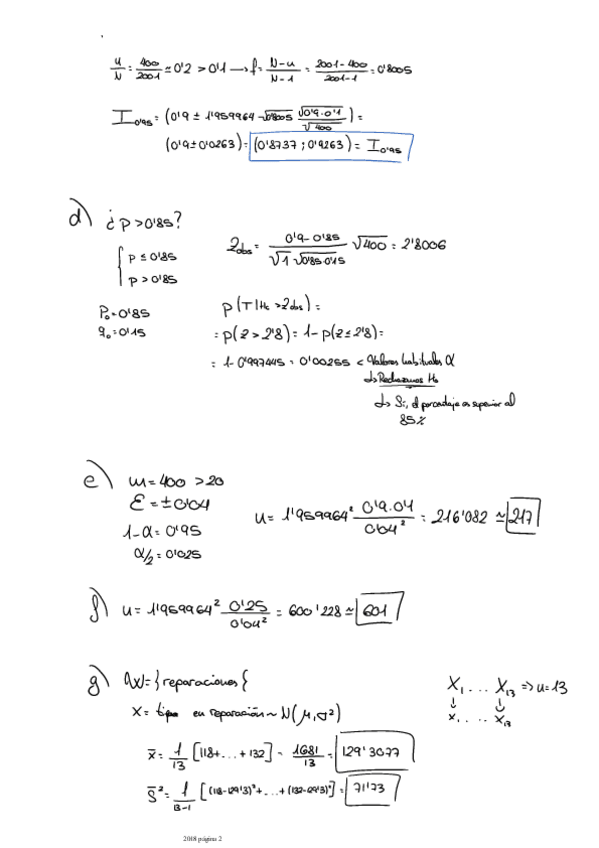 n/N = 400/2001 ≃ 0'2 > 0'1 → f = N-n/N-1 = 2001-400/2001-1 = 0'8005
I0'95 = (0'9 ± 1'959964 · √0'8005 √0'9·0'1/√400) =
(0'9 ± 0'0263) = (0'8737 ; 0'9263) = I0'95
d) ¿p > 0'85?
{ p ≤ 0'85
p > 0'85
Zobs = 0'9-0'85/√1 √0'85·0'15 √400 = 2'8006
P0 = 0'85
q0 = 0'15
P(T|H0 > Zobs) =
= P(Z > 2'8) = 1 - P(Z ≤ 2'8) =
= 1 - 0'997445 = 0'00255 < Valores habituales α
↳ Rechazamos H0
↳ Sí, el porcentaje es superior al
85%
e) n = 400 > 20
ε = ±0'04
1-α = 0'95
α/2 = 0'025
n = 1'959964² 0'9·0'1/0'04² = 216'082 ≃ 217
f) n = 1'959964² 0'25/0'04² = 600'228 ≃ 601
g) = {reparaciones}
X = en reparación ~ N(μ, σ²)
X1 ... X13 => n = 13
↓ ↓
x1 ... x13
x̄ = 1/13 [118 + ... + 132] = 1681/13 = 129'3077
S̄² = 1/13-1 [(118-129'3)² + ... + (132-129'3)²] = 71'73
2018 página 2